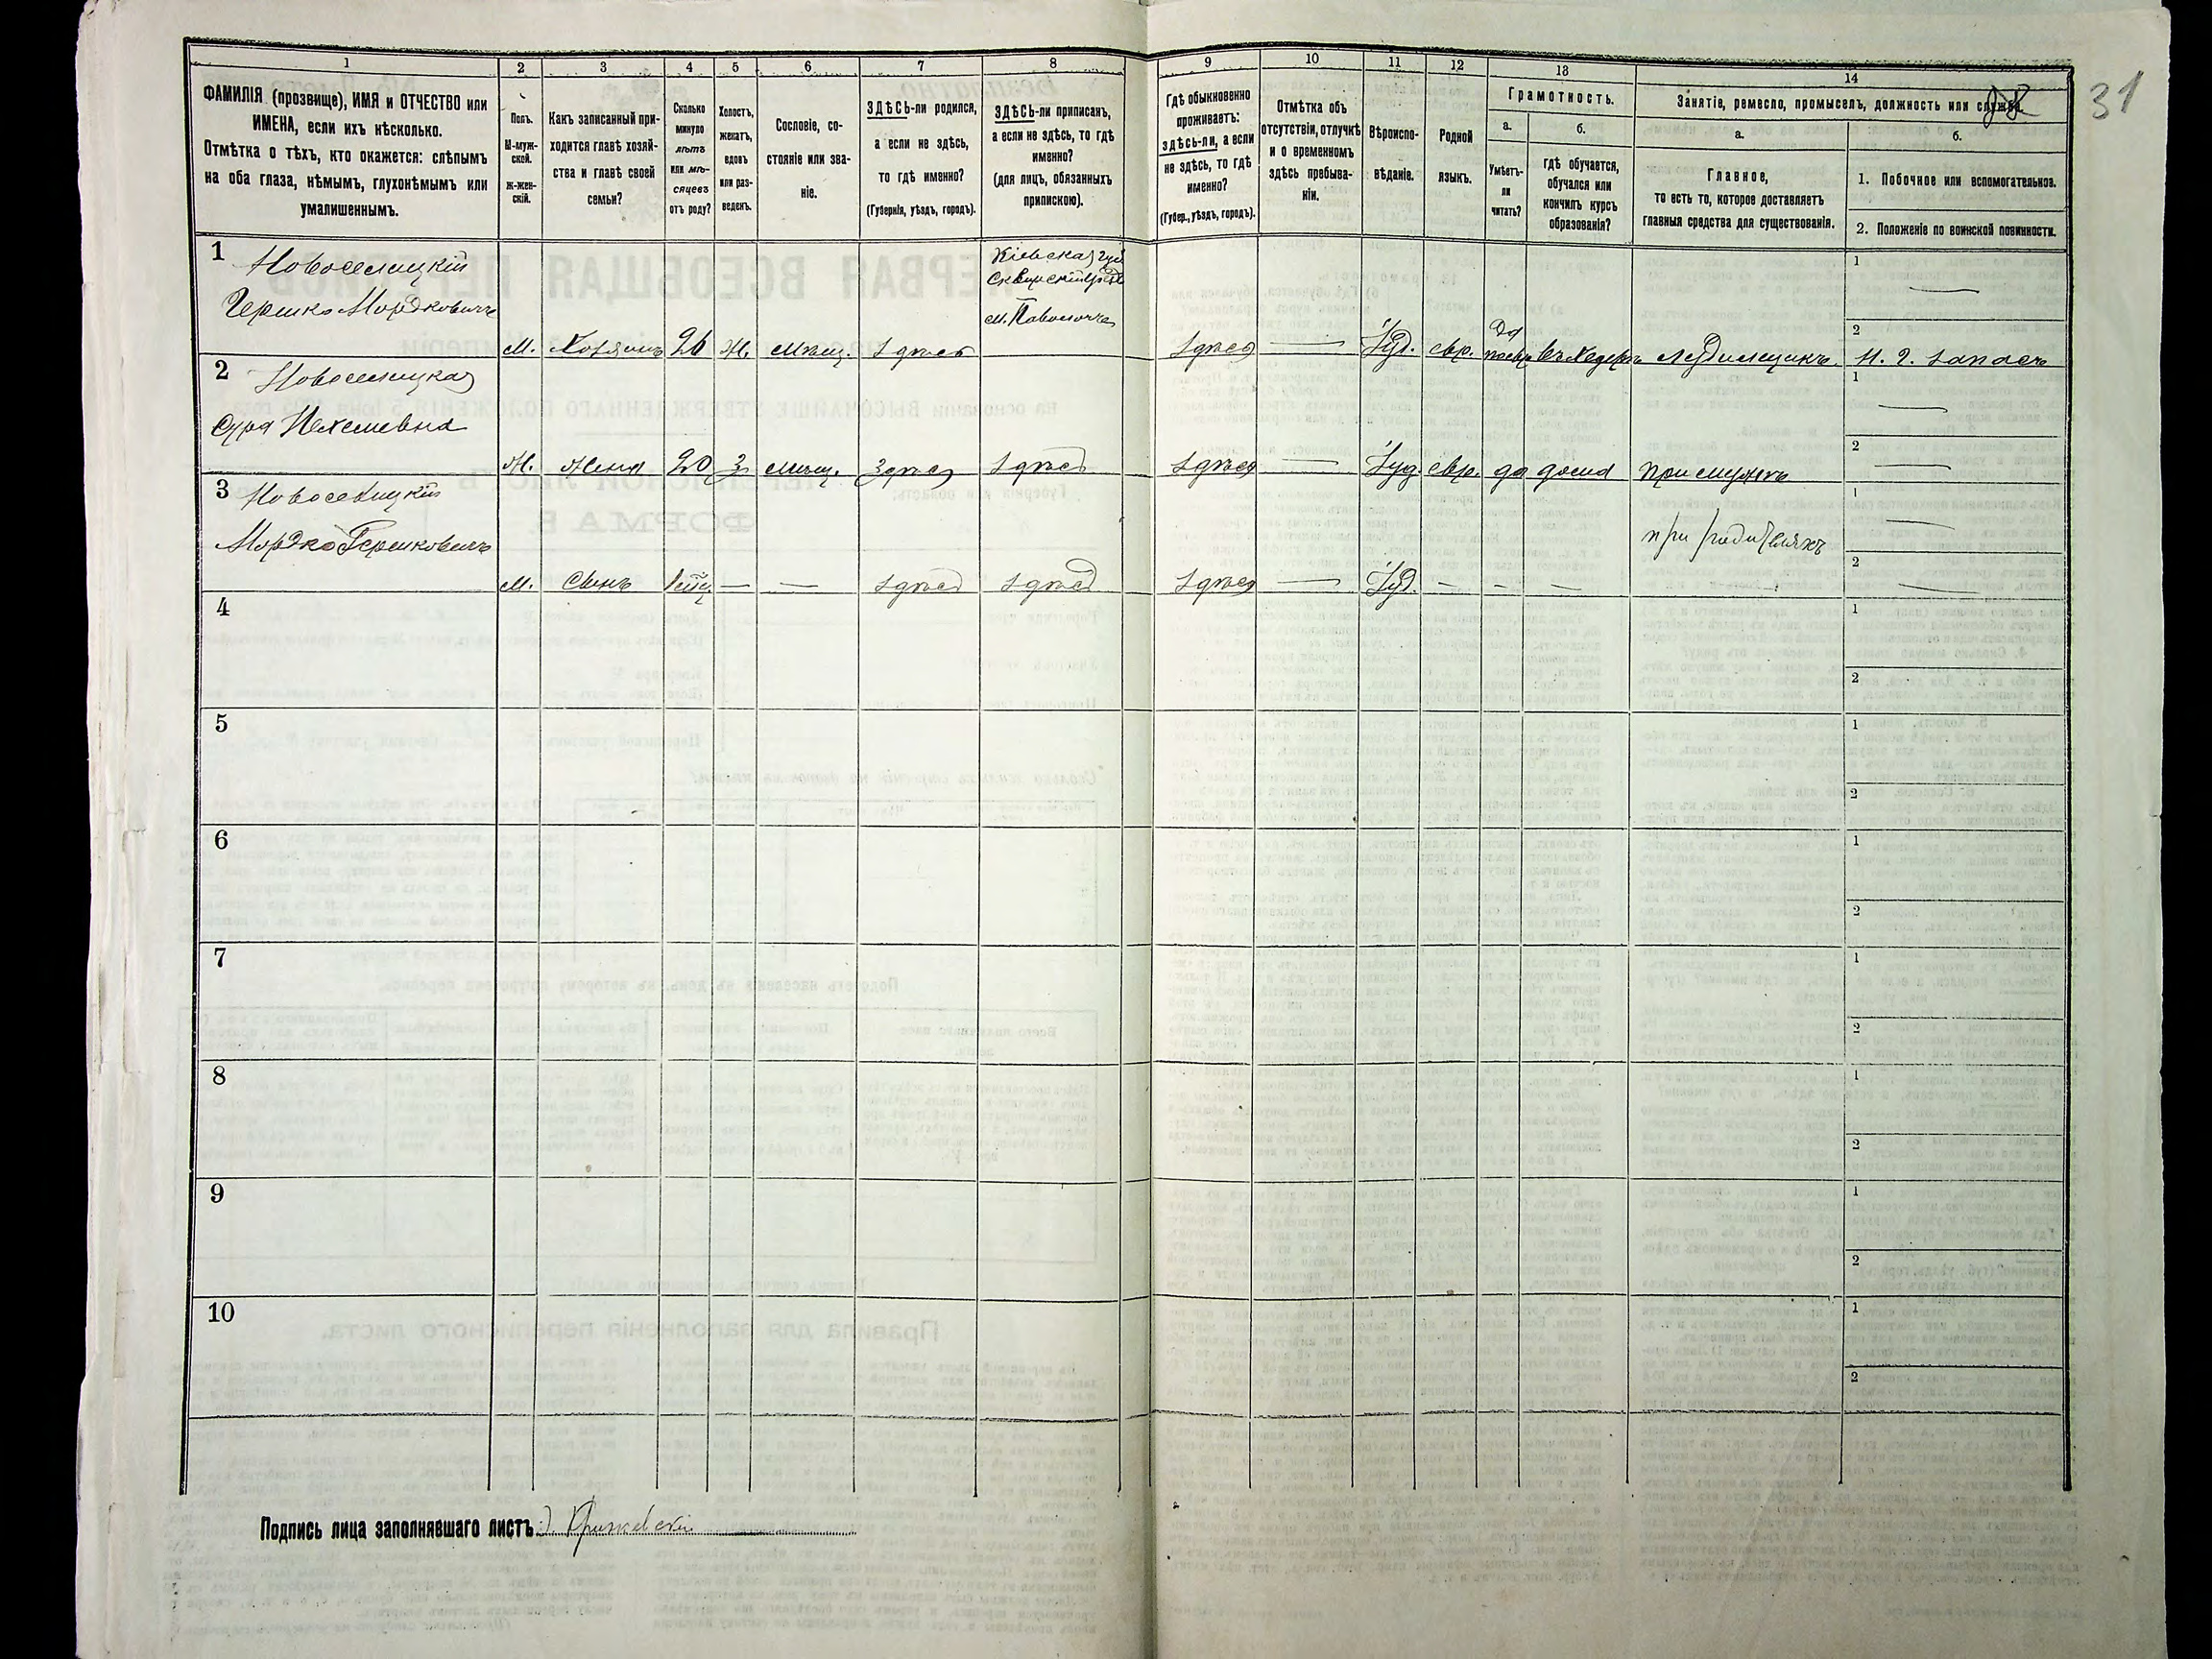 1 2 3 4 5 6 7 8 9 10 11 12 13 14
31
ФАМИЛІЯ (прозвище), ИМЯ и ОТЧЕСТВО или
ИМЕНА, если ихъ нѣсколько.
Отмѣтка о тѣхъ, кто окажется: слѣпымъ
на оба глаза, нѣмымъ, глухонѣмымъ или
умалишеннымъ.
Полъ.
М-муж-
ской.
Ж-жен-
скій.
Какъ записанный при-
ходится главѣ хозяй-
ства и главѣ своей
семьи?
Сколько
минуло
лѣтъ
или мѣ-
сяцевъ
отъ роду?
Холостъ,
женатъ,
вдовъ
или раз-
веденъ.
Сословіе, со-
стояніе или зва-
ніе.
ЗДѢСЬ-ли родился,
а если не здѣсь,
то гдѣ именно?
(Губернія, уѣздъ, городъ).
ЗДѢСЬ-ли приписанъ,
а если не здѣсь, то гдѣ
именно?
(для лицъ, обязанныхъ
припискою).
Гдѣ обыкновенно
проживаетъ:
здѣсь-ли, а если
не здѣсь, то гдѣ
именно?
(Губер., уѣздъ, городъ).
Отмѣтка объ
отсутствіи, отлучкѣ
и о временномъ
здѣсь пребыва-
ніи.
Вѣроиспо-
вѣданіе.
Родной
языкъ.
Грамотность.
а.
Умѣетъ-
ли
читать?
б.
гдѣ обучается,
обучался или
кончилъ курсъ
образованія?
Занятіе, ремесло, промыселъ, должность или служба.
а.
Главное,
то есть то, которое доставляетъ
главныя средства для существованія.
б.
1. Побочное или вспомогательное.
2. Положеніе по воинской повинности.
1 Новоселицкій
Гершко Мордковичъ
Кіевская губ
Сквирскій уѣздъ
м. Паволочь
М. Хозяинъ 26 Ж. мѣщ. Здѣсь
Здѣсь — Іуд. евр. да въ хедерѣ
1 —
2
2 Новоселицкая
Сура Нехемевна
Ж. Жена 20 З мѣщ. Здѣсь Здѣсь
Здѣсь — Іуд. евр. да дома при мужѣ
1 —
2 —
3 Новоселицкій
Мордко Гершковичъ
М. Сынъ — — Здѣсь Здѣсь
Здѣсь — Іуд. — — —
при родителяхъ
1 —
2 —
4
1
2
5
1
2
6
1
2
7
1
2
8
1
2
9
1
2
10
1
2
Подпись лица заполнявшаго листъ: